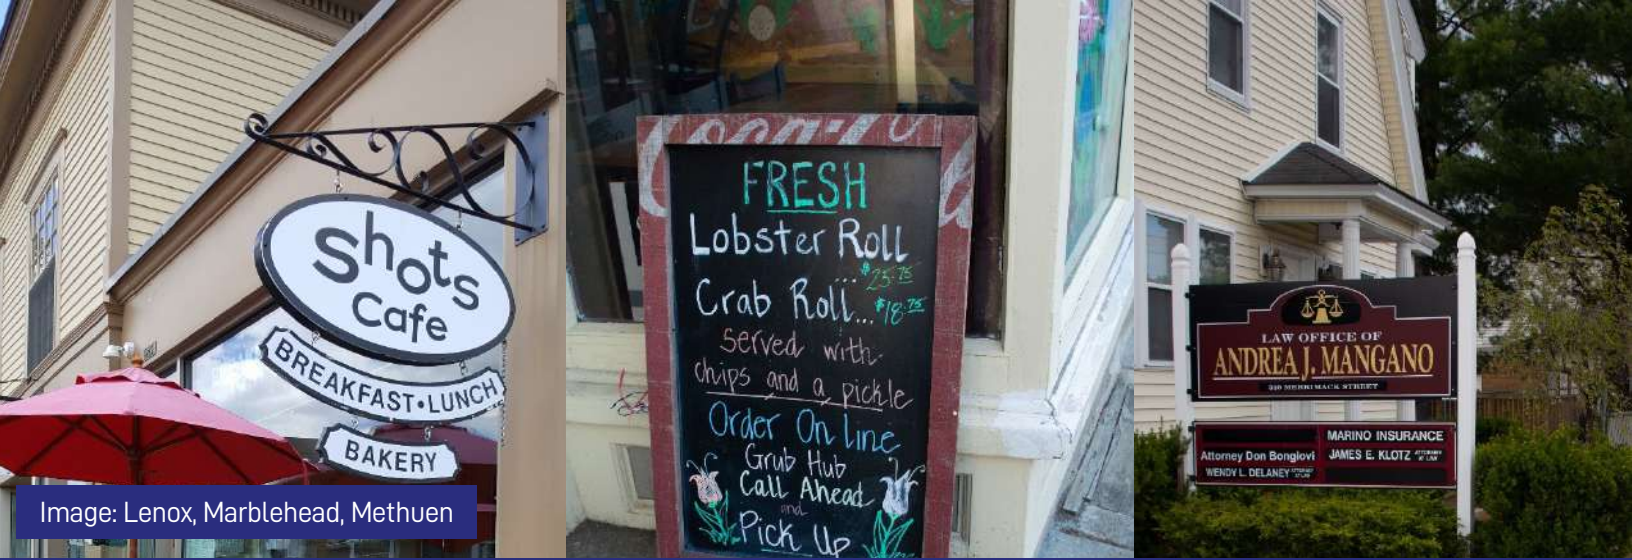 shots
Cafe
BREAKFAST•LUNCH
BAKERY
Image: Lenox, Marblehead, Methuen
Coca-Cola
FRESH
Lobster Roll
... $25.75
Crab Roll... $18.75
served with
chips and a pickle
Order On line
Grub Hub
Call Ahead
and
Pick Up
LAW OFFICE OF
ANDREA J. MANGANO
MERRIMACK STREET
MARINO INSURANCE
Attorney Don Bongiovi
JAMES E. KLOTZ ATTORNEY AT LAW
WENDY L. DELANEY ATTORNEY AT LAW